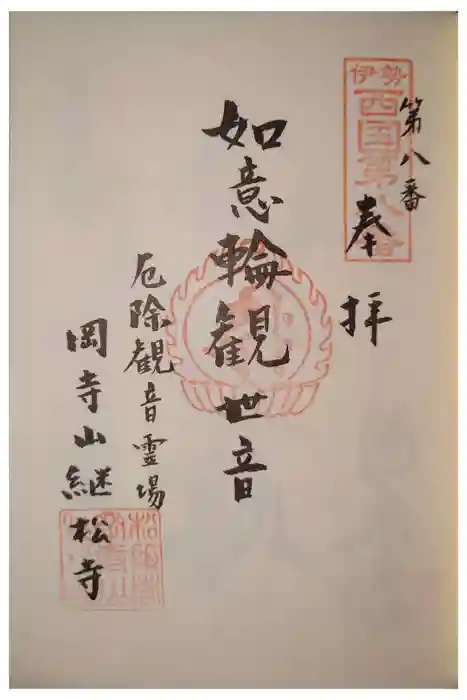 伊勢
西国第八番
第八番
奉
拝
如意輪観世音
厄除観音霊場
岡寺山継松寺